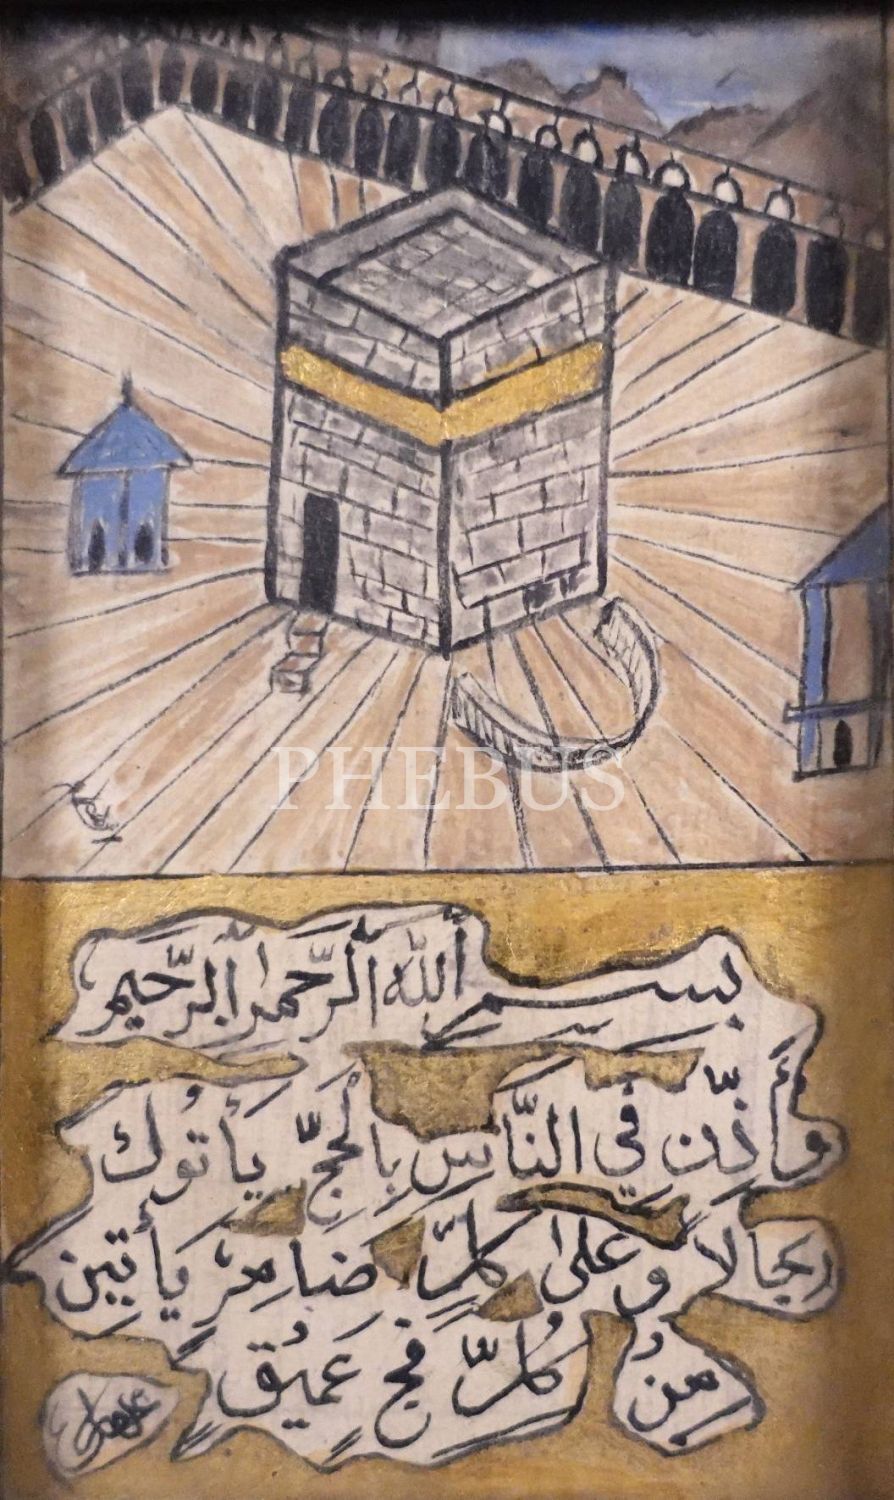 PHEBUS
بسم الله الرحمن الرحيم
وَأَذِّن فِي النَّاسِ بِالْحَجِّ يَأْتُوكَ
رجالا وعلى كلِّ ضامرٍ يَأتين
من كُلِّ فج عَميق